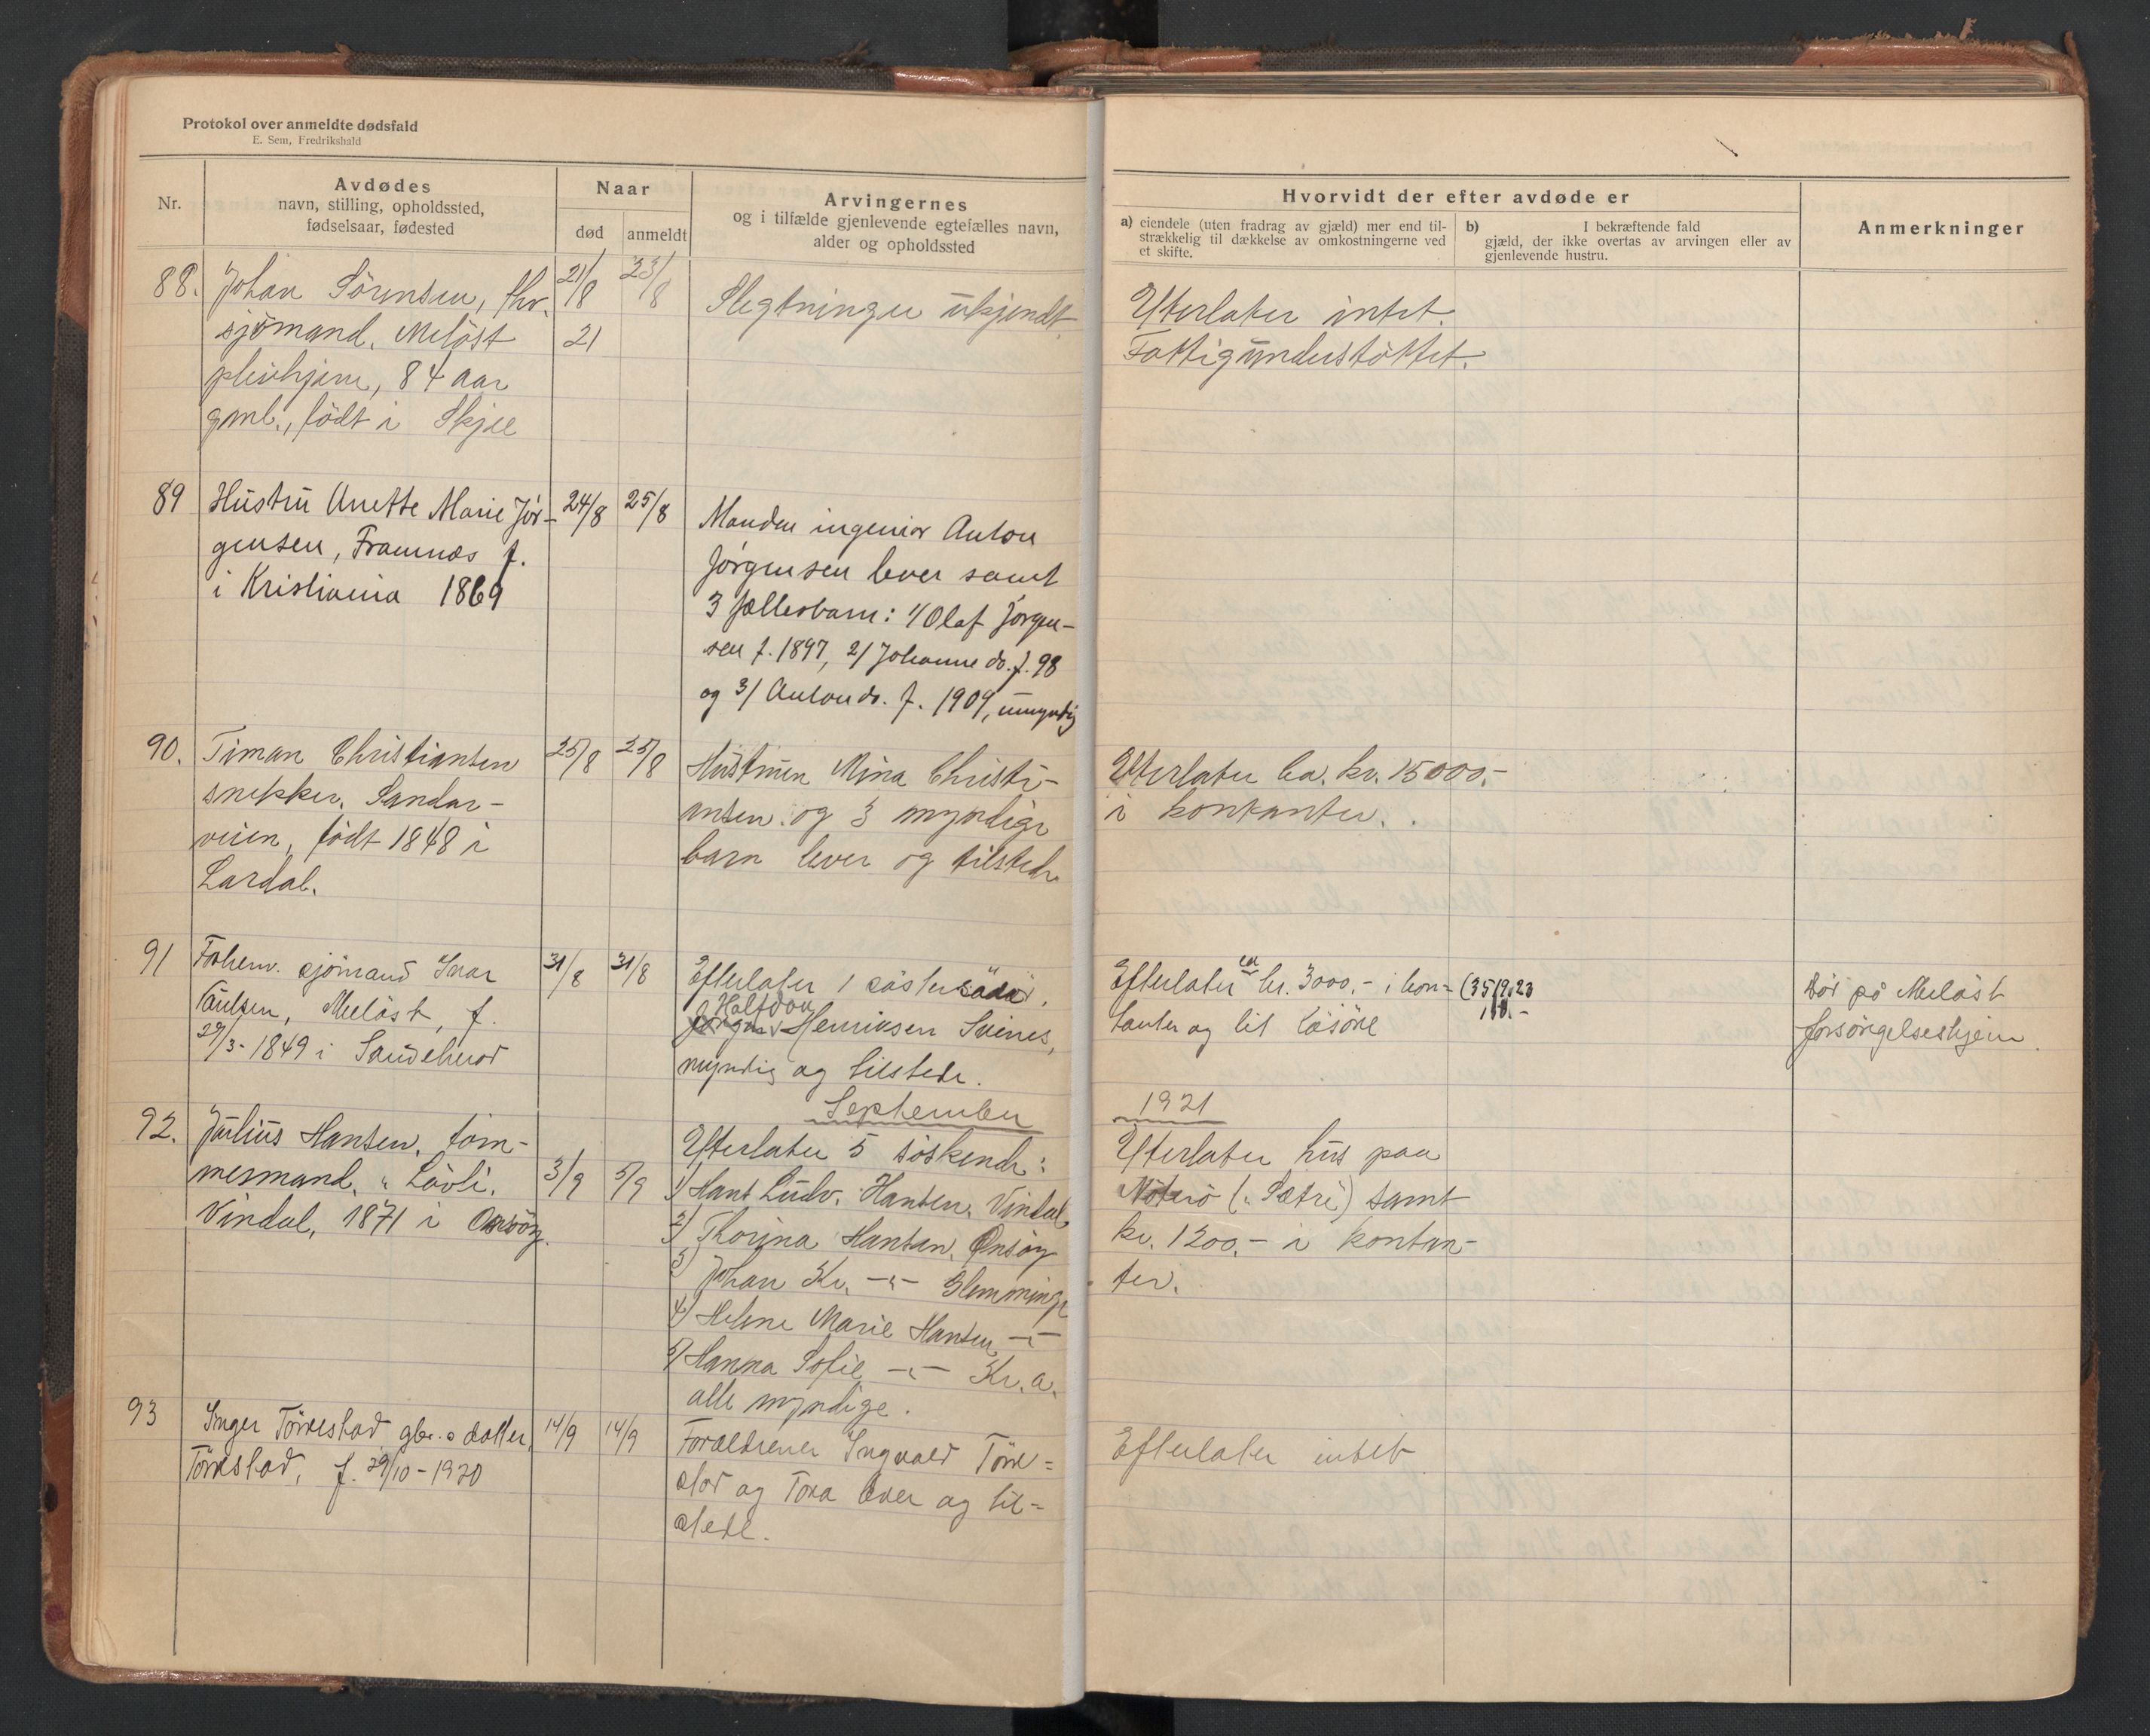 Protokol over anmeldte dødsfald
E. Sem, Fredrikshald
Nr.
Avdødes
navn, stilling, opholdssted,
fødselsaar, fødested
Naar
død
anmeldt
Arvingernes
og i tilfælde gjenlevende egtefælles navn,
alder og opholdssted
Hvorvidt der efter avdøde er
a) eiendele (uten fradrag av gjæld) mer end til-
strækkelig til dækkelse av omkostningerne ved
et skifte.
b) I bekræftende fald
gjæld, der ikke overtas av arvingen eller av
gjenlevende hustru.
Anmerkninger
88.
Johan Sörensen, fhv.
sjömand, Melöst
pleiehjem, 84 aar
gml., födt i Skjee
21/8
21
23/8
Slegtninger ukjendt
Efterlater intet.
Fattigunderstöttet.
89
Hustru Anette Marie Jör-
gensen, Framnæs f.
i Kristiania 1869
24/8
25/8
Manden ingeniör Anton
Jörgensen lever samt
3 fællesbarn: 1/ Olaf Jörgen-
sen f. 1897, 2/ Johanne do. f. 98
og 3/ Anton do. f. 1909, umyndig
90.
Timan Christiansen
snekker, Sandar-
veien, födt 1848 i
Lardal.
25/8
25/8
Hustruen Mina Christi-
ansen og 3 myndige
barn lever og tilstede
Efterlater ca. kr. 15000.-
i kontanter.
91
Forhenv. sjömand Ivar
Paulsen, Melöst, f.
29/3-1849 i Sandeherod
31/8
31/8
Efterlater 1 söster
Halfdan
Henriksen Svines,
myndig og tilstede.
Efterlater ca kr. 3000.- i kon-
tanter og lit lösöre
Dör på Melöst
forsörgelseshjem.
September
1921
92.
Julius Hansen, töm-
mermand, " Lövli.
Vindal, 1871 i Onsöy.
3/9
5/9
Efterlater 5 söskende:
1) Hans Ludv. Hansen, Vindal
2) Thorina Hansen, Onsöy
3) Johan Kr. -"- Glemminge
4) Helene Marie Hansen -"-
5) Hanna Sofie -"- Kr.a.
alle myndige.
Efterlater hus paa
Nöterö (" Sætre) samt
kr. 1200.- i kontan-
ter.
93
Inger Törrestad gbr.s datter,
Törrestad, f. 29/10-1920
14/9
14/9
Forældrene Ingvald Törre=
stad og Tora lever og til=
stede.
Efterlater intet